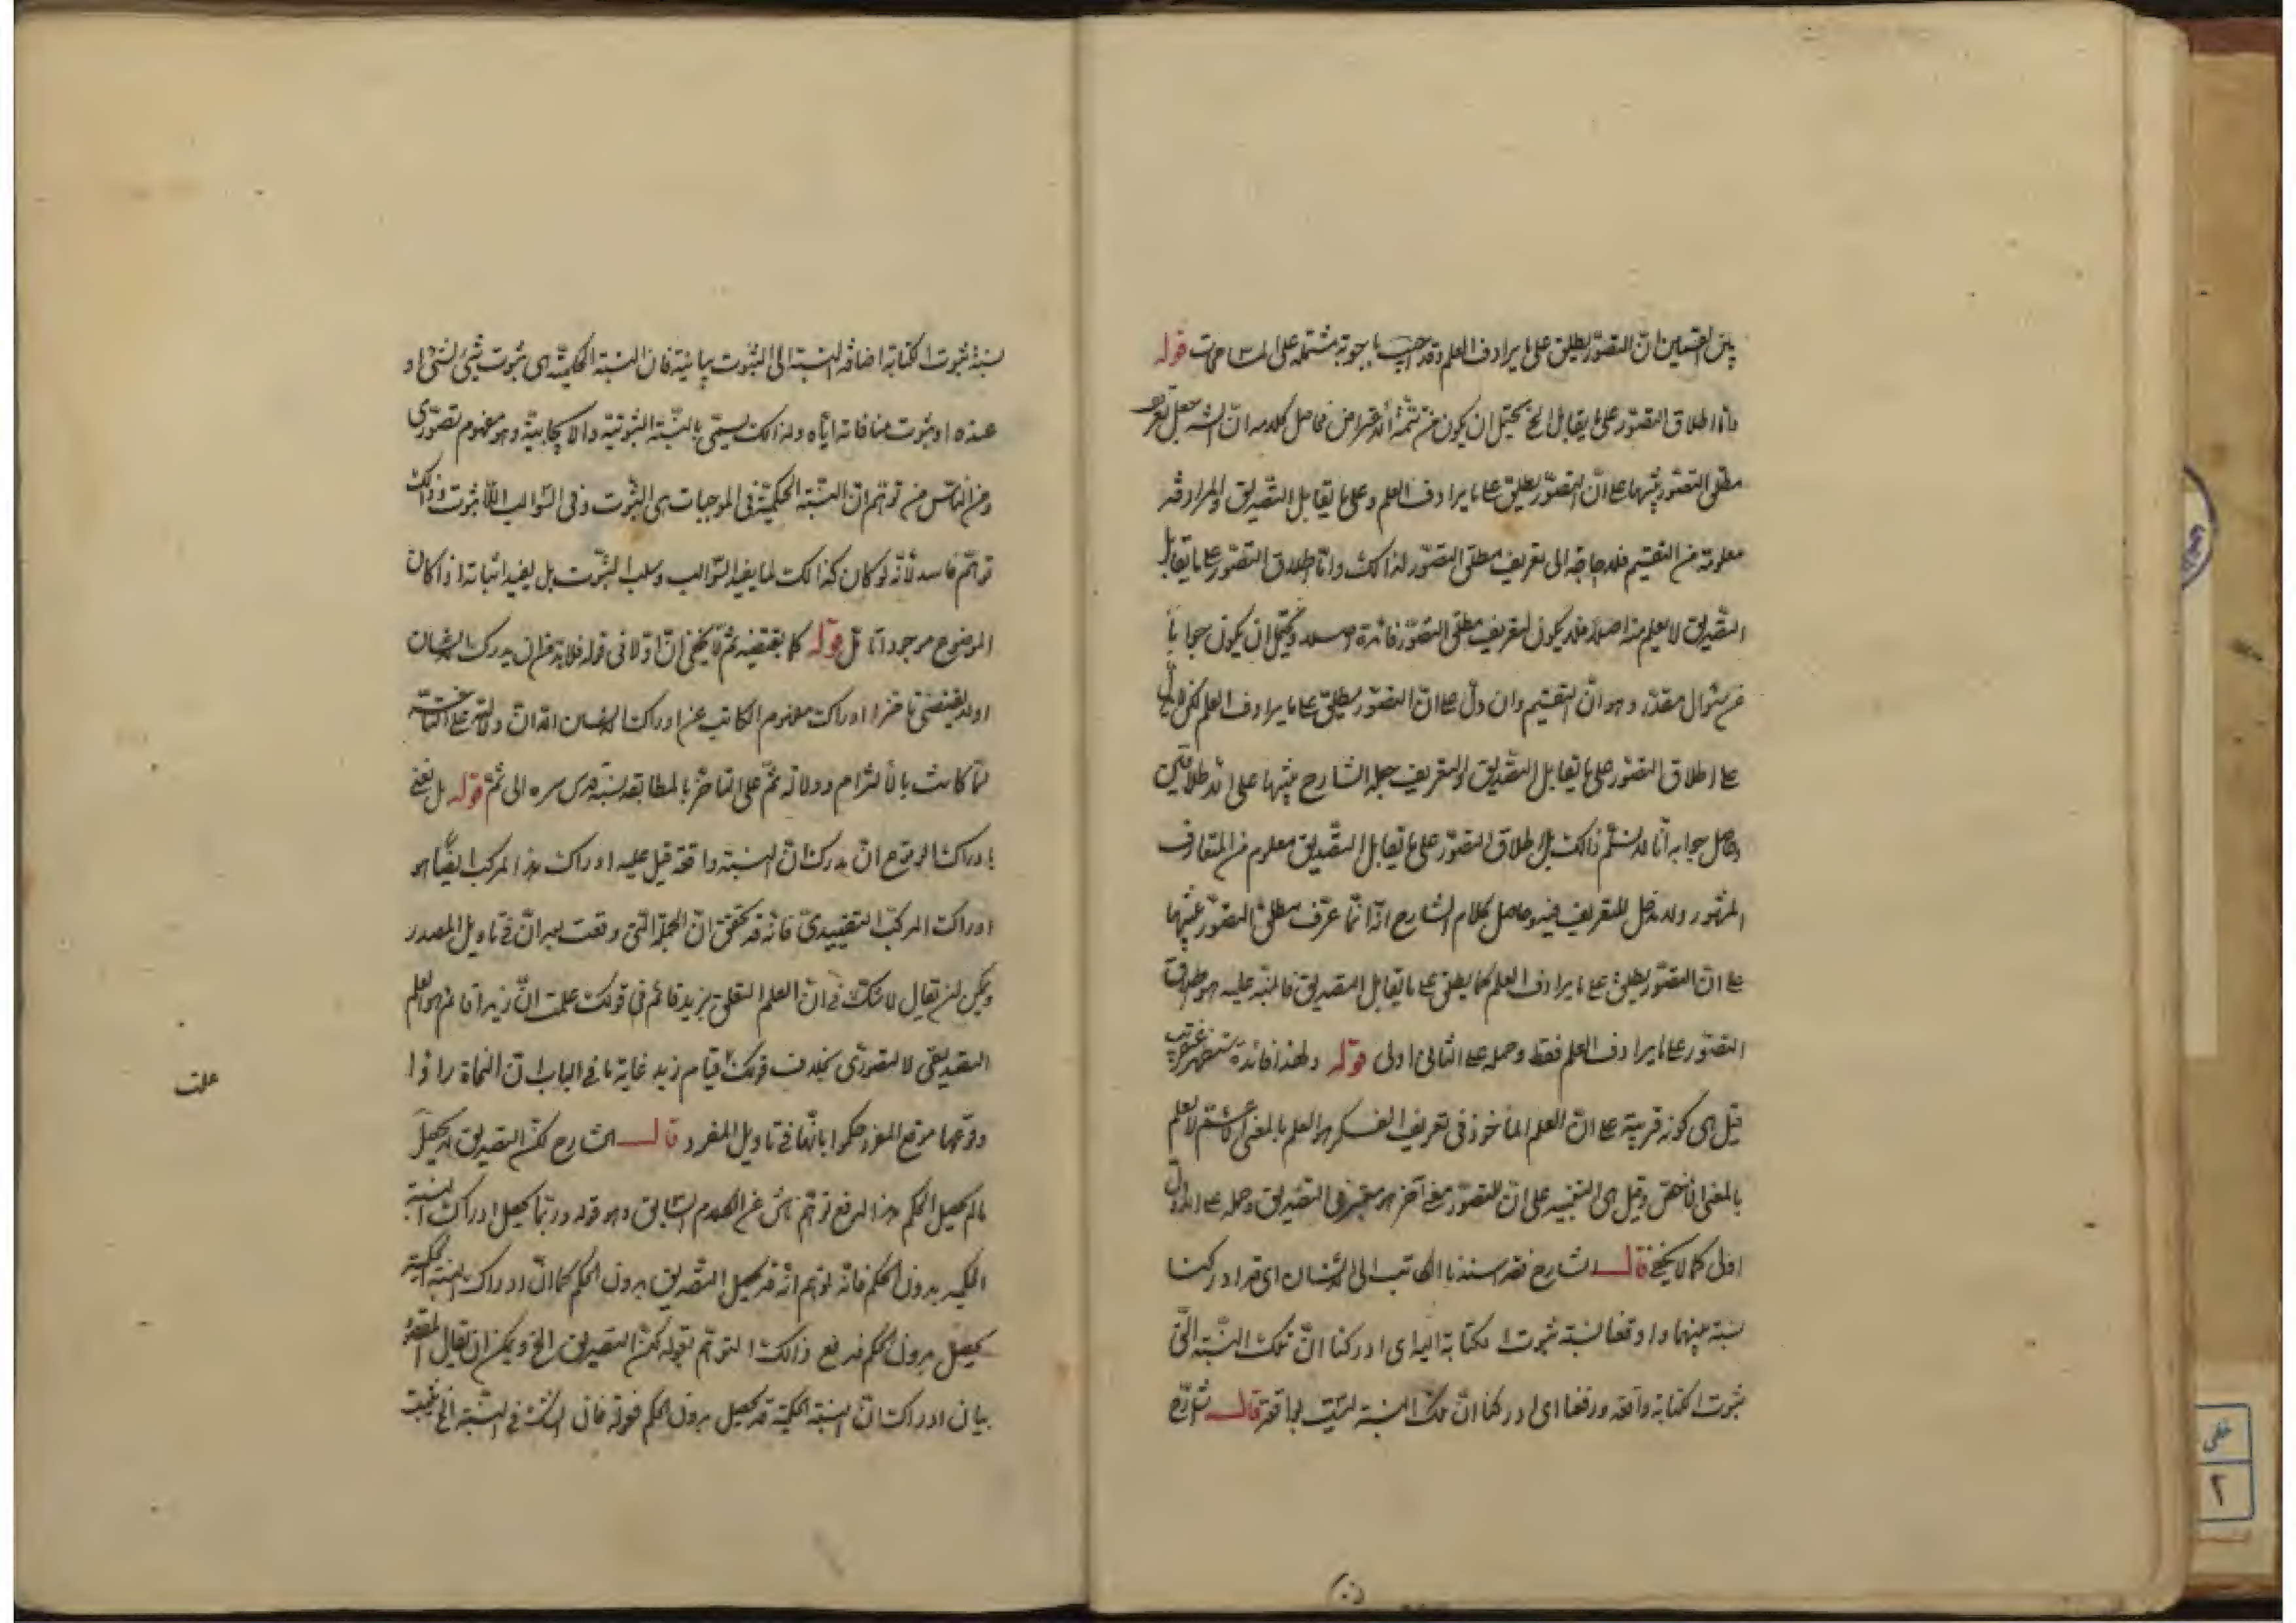 بين القسمين ان التصوّر يطلق على ما يرادف العلم وقد اجيب باجوبة مشتملة على المسامحات قوله
وامّا اطلاق التصوّر على ما يقابل الخ يحتمل ان يكون من تتمّة الاعتراض فحاصل كلامه انّ الشارح جعل تعريف
مطلق التصوّر تنبيها على انّ التصوّر يطلق على ما يرادف العلم وعلى ما يقابل التصديق والمرادفة
معلومة من التقسيم فلا حاجة الى تعريف مطلق التصوّر لذلك وامّا اطلاق التصوّر على ما يقابل
التصديق لا يعلم منه اصلا فلا يكون لتعريف مطلق التصوّر فائدة اصلا ويحتمل ان يكون جوابا
عن سؤال مقدّر وهو انّ التقسيم وان دلّ على انّ التصوّر يطلق على ما يرادف العلم لكن لا يدلّ
على اطلاق التصوّر على ما يقابل التصديق والتعريف جعله الشارح تنبيها على الاطلاقين
وحاصل جوابه انّا لا نسلّم ذلك بل اطلاق التصوّر على ما يقابل التصديق معلوم من المتعارف
المشهور ولا دخل للتعريف فيه وحاصل كلام الشارح انّه انّما عرّف مطلق التصوّر تنبيها
على انّ التصوّر يطلق على ما يرادف العلم كما يطلق على ما يقابل التصديق فالمنبّه عليه هو اطلاق
التصوّر على ما يرادف العلم فقط وحمله على الثانى اولى قوله ولهذا فائدة ستظهر عن قريب
قيل هى كونه قرينة على انّ العلم المأخوذ فى تعريف الفكر هو العلم بالمعنى الاعمّ لا العلم
بالمعنى الاخصّ وقيل هى التنبيه على انّ للتصوّر معنى آخر هو معتبر فى التصديق وحمله على الاول
اولى كما لا يخفى قال الشارح فقد اسندنا الكاتب الى الانسان اى قد ادركنا
نسبة بينهما واوقعنا نسبة ثبوت الكتابة اليه اى ادركنا انّ تلك النسبة التى
ثبوت الكتابة واقعة ورفعنا اى ادركنا انّ تلك النسبة ليست بواقعة قال الشارح
نسبة ثبوت الكتابة اضافة النسبة الى الثبوت بيانية فان النسبة الحكمية هى ثبوت شىء لشىء او
عنده او ثبوت منافاته ايّاه ولذلك يسمّى بالنسبة الثبوتية والايجابية وهو مفهوم تصوّرى
ومن الناس من توهّم انّ النسبة الحكمية فى الموجبات هى الثبوت وفى السوالب اللاثبوت وذلك
توهّم فاسد لانّه لو كان كذلك لما يفيد السوالب سلب الثبوت بل يفيد اثباته اذا كان
الموضوع موجودا تأمل قوله كما يقتضيه ثمّ لا يخفى انّ اولا فى قوله فلابد من ان يدرك الانسان
اولا يقتضى تاخر ادراك مفهوم الكاتب عن ادراك الانسان الا ان دلالته على التاخر
لمّا كانت بالالتزام ودلالة ثمّ على التاخر بالمطابقة نسبه قدس سره الى ثمّ قوله بل يعنى
بادراك الوقوع ان يدرك انّ النسبة واقعة قيل عليه ادراك هذا المركب ايضا هو
ادراك المركب التقييدى فانّه قد تحقق انّ الجملة التى وقعت بعد انّ فى تاويل المصدر
ويمكن ان يقال لا شكّ فى انّ العلم المتعلق بزيد قائم فى قولك علمت انّ زيدا قائم هو العلم
التصديقى لا التصوّرى بخلاف قولك قيام زيد غاية ما فى الباب انّ النحاة رأوا
وقوعها موقع المفرد حكموا بانّها فى تاويل المفرد قال الشارح لكن التصديق لا يحصل
ما لم يحصل الحكم هذا لدفع توهّم ناش عن الكلام السابق وهو قوله وربّما يحصل ادراك النسبة
الحكمية بدون الحكم فانّه توهّم انّه قد يحصل التصديق بدون الحكم كما انّ ادراك النسبة الحكمية
يحصل بدون الحكم فدفع ذلك التوهّم بقوله لكن التصديق الخ ويمكن ان يقال المقصود
بيان ادراك انّ النسبة الحكمية قد يحصل بدون الحكم قوله فان الشك فى النسبة الخ
علمت